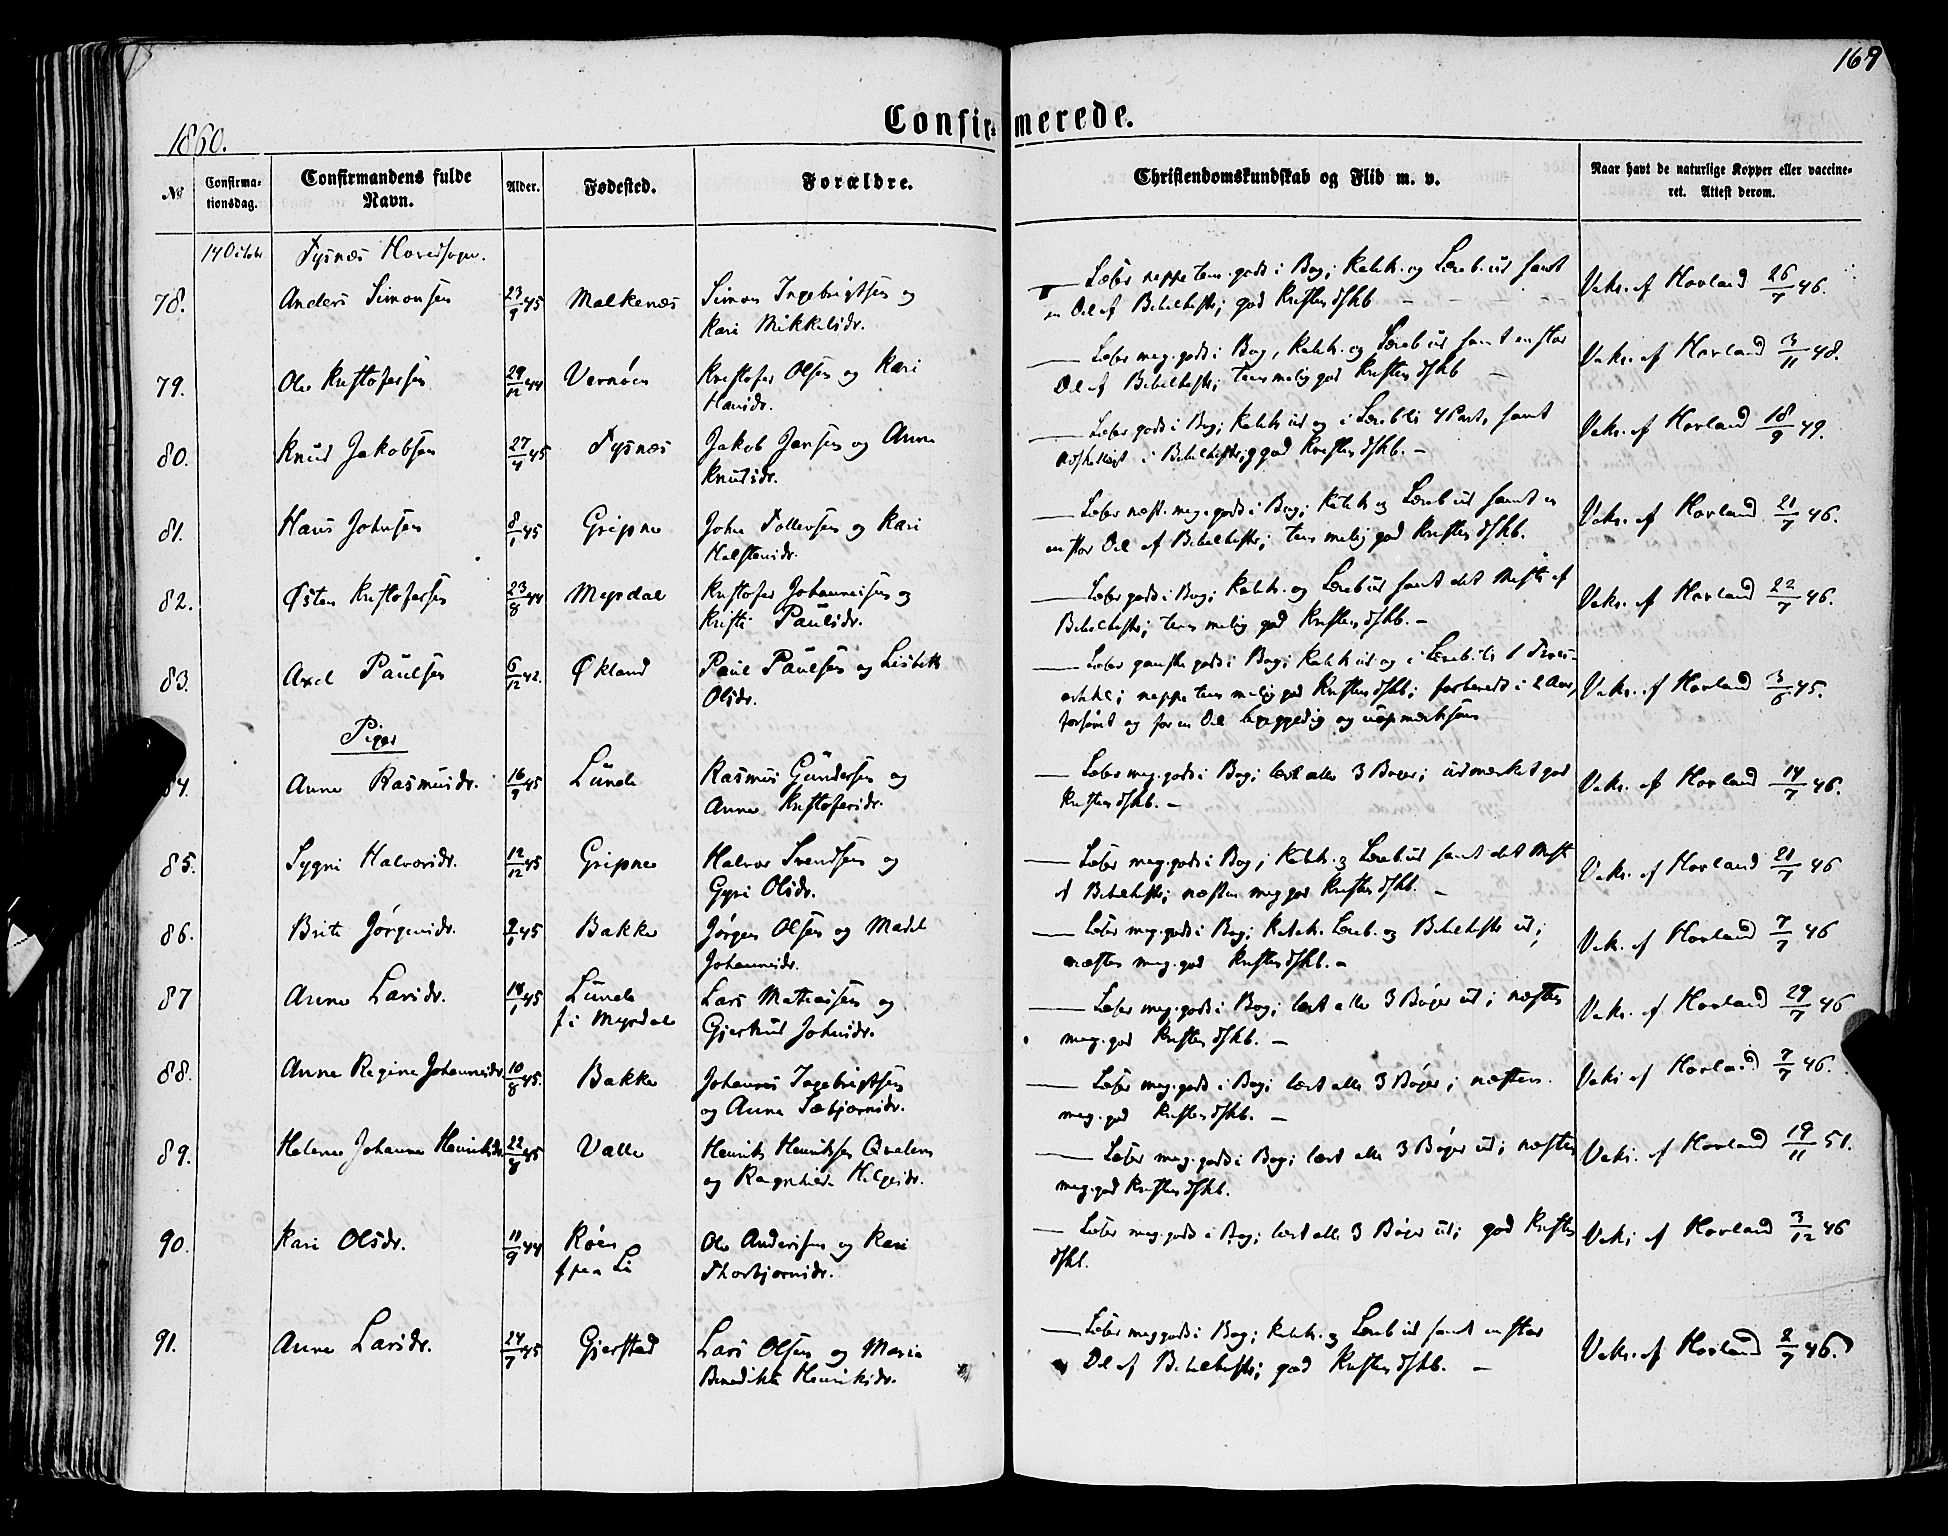 169
Confirmerede.
1860.
No
Confirma-
tionsdag.
Confirmandens fulde
Navn.
Alder.
Fødested.
Forældre.
Christendomskundskab og Flid m. v.
Naar havt de naturlige Kopper eller vaccine-
ret. Attest derom.
14 October Tysnæs Hovedsogn.
78. Anders Simonsen 23/9 45 Malkenæs Simon Ingebrigtsen og
Kari Mikkelsdr.
Læser neppe tem. godt i Bog; Katek. og Læreb. ud samt
en Del af Bibelhist; god Kristendskb
Vaks. af Hovland 26/7 46.
79. Ole Kristofersen 29/12 44 Vernøen Kristofer Olsen og Kari
Hansdr.
Læser meg. godt i Bog, Katek. og Læreb ud samt en stor
Del af Bibelhist; temmelig god Kristendskb
Vaks. af Hovland 3/11 48.
80. Knud Jakobsen 27/4 45 Tysnæs Jakob Jensen og Anna
Knudsdr.
Læser godt i Bog; Katek ud og i Læreb til 4 Part, samt
i Bibelhist; god Kristendskb.
Vaks. af Hovland 18/9 49.
81. Hans Johnsen 8/1 45 Gripne John Tollevsen og Kari
Halstensdr.
Læser næst. meg. godt i Bog; Katek og Læreb ud samt en
en stor Del af Bibelhist; temmelig god Kristendskb.
Vaks. af Hovland 21/7 46.
82. Østen Kristofersen 23/8 44 Myrdal Kristofer Johannesen og
Kristi Paulsdr.
Læser godt i Bog; Katek. og Læreb ud samt det Meste af
Bibelhist; temmelig god Kristendskb.
Vaks. af Hovland 22/7 46.
83. Axel Paulsen 6/12 42. Økland Paul Paulsen og Lisbeth
Olsdr.
Læser ganske godt i Bog; Katek ud og i Læreb. til 1 Tros-
artikel; neppe temmelig god Kristendskb; forberedt i 2 Aar,
forsømt og for en Del og uopmerksom
Vaks. af Hovland 3/6 45.
Piger
84. Anna Rasmusdr. 16/9 45 Lunde Rasmus Gundersen og
Anna Kristofersdr.
Læser meg. godt i Bog; lært alle 3 Bøger; udmerket god
Kristendskb.
Vaks. af Hovland 14/7 46.
85. Sygni Halvorsdr. 12/12 45 Gripne Halvor Svendsen og
Gyri Olsdr.
Læser meg. godt i Bog; Katek. og Læreb ud samt det Mest
af Bibelhist; næsten meg god Kristendskb.
Vaks. af Hovland 21/7 46
86. Brite Jørgensdr. 2/1 45 Bakke Jørgen Olsen og Madel
Johannesdr.
Læser meg. godt i Bog; Katek. Læreb. og Bibelhist ud;
næsten meg. god Kristendskb.
Vak. af Hovland 7/7 46
87 Anna Larsdr. 18/1 45 Lunde
f i Myrdal Lars Mathiassen og
Gjertrud Johnsdr.
Læser meg. godt i Bog; lært alle 3 Bøger ud; næsten
meg. god Kristendskb.
Vaks. af Hovland 29/7 46
88. Anna Regine Johannesdr. 10/8 45. Bakke Johannes Ingebrigtsen
og Anna Sæbjørnsdr.
Læser meg. godt i Bog; lært alle 3 Bøger; næsten
meg. god Kristendskb.
Vaks af Hovland 7/7 46.
89. Helene Johanne Henriksdr 22/8 45 Valle Henrik Henriksen Qvalen
og Ragnhild Helgesdr.
Læser meg. godt i Bog; lært alle 3 Bøger ud; næsten
meg. god Kristendskb.
Vaks. af Hovland 19/11 51.
90. Kari Olsdr. 11/9 44 Røen
f paa Li Ole Andersen og Kari
Thorbjørnsdr.
Læser meg. godt i Bog; lært alle 3 Bøger ud; god Kristen
dskb.
Vaks af Hovland 3/12 46
91. Anna Larsdr. 24/7 45 Gjerstad Lars Olsen og Maria
Benedikte Henriksdr.
Læser meg godt i Bog; Katek. og Læreb ud samt en stor
Del af Bibelhist; god Kristendskb.
Vaks. af Hovland 2/7 46.